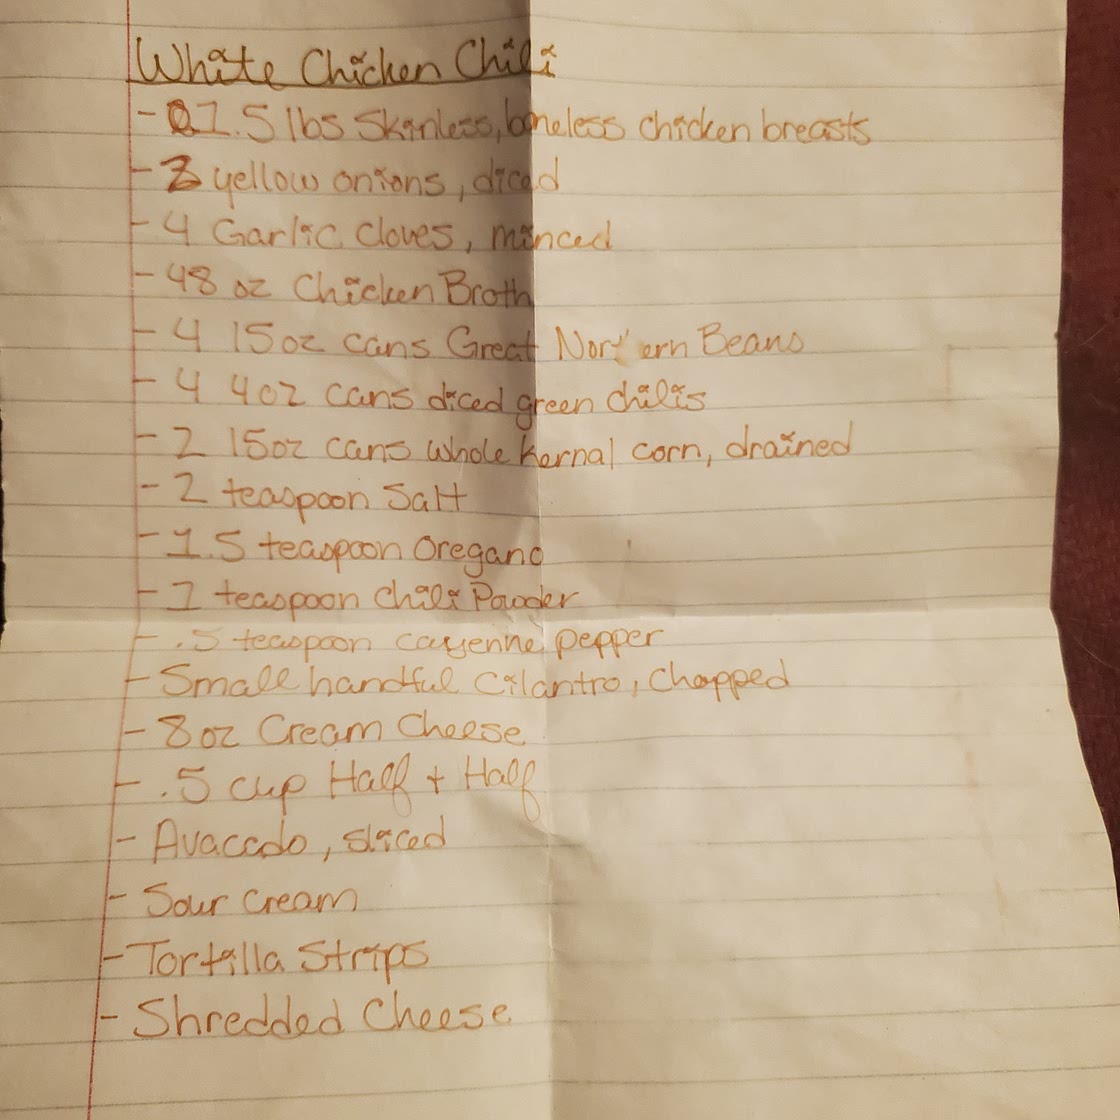 White Chicken Chili
- 1.5 lbs Skinless, boneless chicken breasts
- yellow onions, diced
- 4 Garlic Cloves, minced
- 48 oz Chicken Broth
- 4 15oz cans Great Northern Beans
- 4 4oz cans diced green chilis
- 2 15oz cans whole kernal corn, drained
- 2 teaspoon Salt
- 1.5 teaspoon Oregano
- 1 teaspoon Chili Powder
- .5 teaspoon cayenne pepper
- Small handful Cilantro, Chopped
- 8 oz Cream Cheese
- .5 cup Half + Half
- Avacado, sliced
- Sour Cream
- Tortilla Strips
- Shredded Cheese